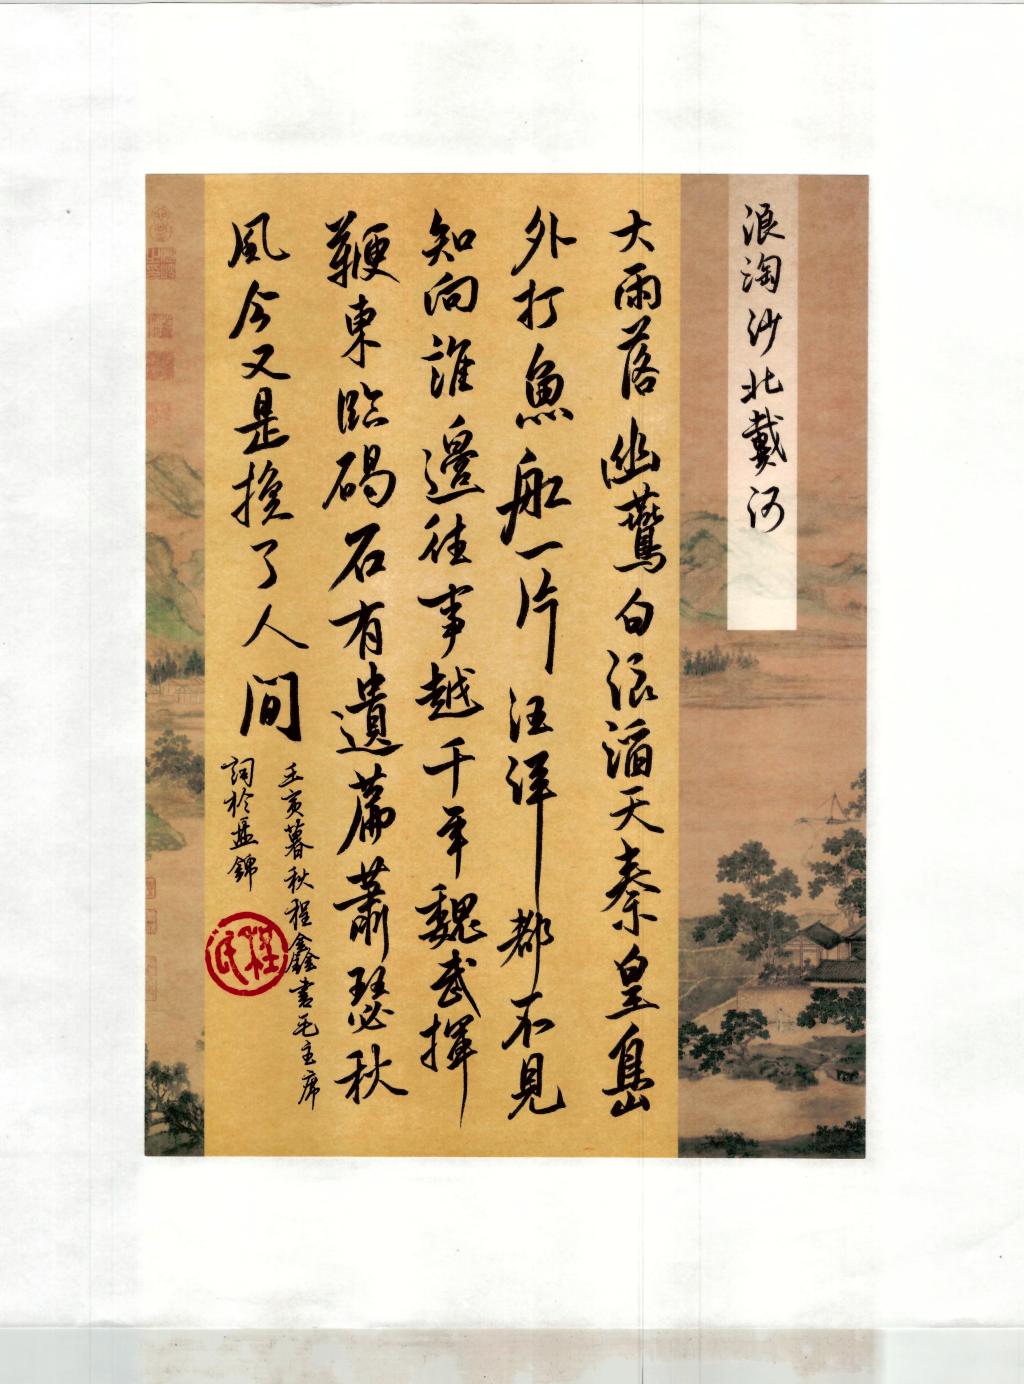 浪淘沙北戴河
大雨落幽鷰白浪滔天秦皇島
外打魚船一片汪洋都不見
知向誰邊往事越千年魏武揮
鞭東臨碣石有遺篇蕭瑟秋
風今又是換了人間
壬寅暮秋程鑫書毛主席
詞於盤錦